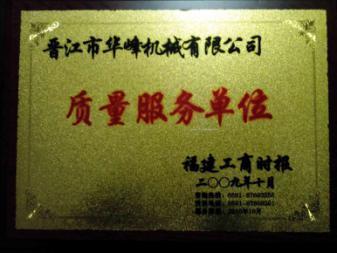 晋江市华峰机械有限公司
质量服务单位
福建工商时报
二〇〇九年十月